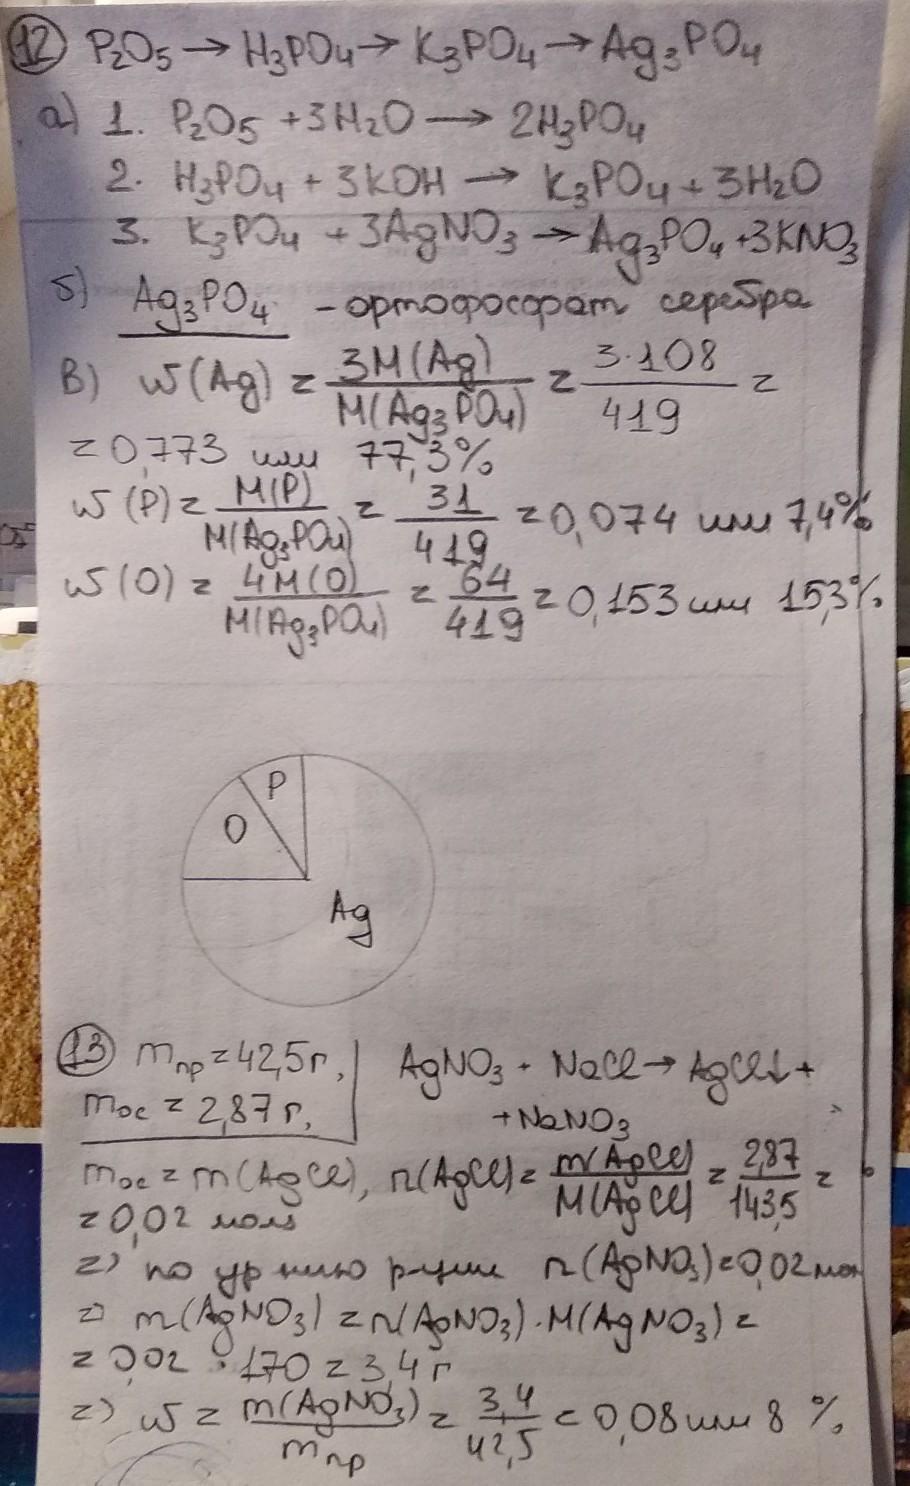 12 P₂O₅ → H₃PO₄ → K₃PO₄ → Ag₃PO₄
а) 1. P₂O₅ + 3H₂O → 2H₃PO₄
2. H₃PO₄ + 3KOH → K₃PO₄ + 3H₂O
3. K₃PO₄ + 3AgNO₃ → Ag₃PO₄ + 3KNO₃
б) Ag₃PO₄ - ортофосфрат серебра
в) w(Ag) = 3M(Ag)/M(Ag₃PO₄) = 3·108/419 =
= 0,773 или 77,3%
w(P) = M(P)/M(Ag₃PO₄) = 31/419 = 0,074 или 7,4%
w(O) = 4M(O)/M(Ag₃PO₄) = 64/419 = 0,153 или 15,3%
P
O
Ag
13 mпр = 42,5 г, AgNO₃ + NaCl → AgCl↓ +
mос = 2,87 г, + NaNO₃
mос = m(AgCl), n(AgCl) = m(AgCl)/M(AgCl) = 2,87/143,5 =
= 0,02 моль
=> по ур-нию р-ции n(AgNO₃) = 0,02 мол
=> m(AgNO₃) = n(AgNO₃)·M(AgNO₃) =
= 0,02 · 170 = 3,4 г
=> w = m(AgNO₃)/mпр = 3,4/42,5 = 0,08 или 8 %